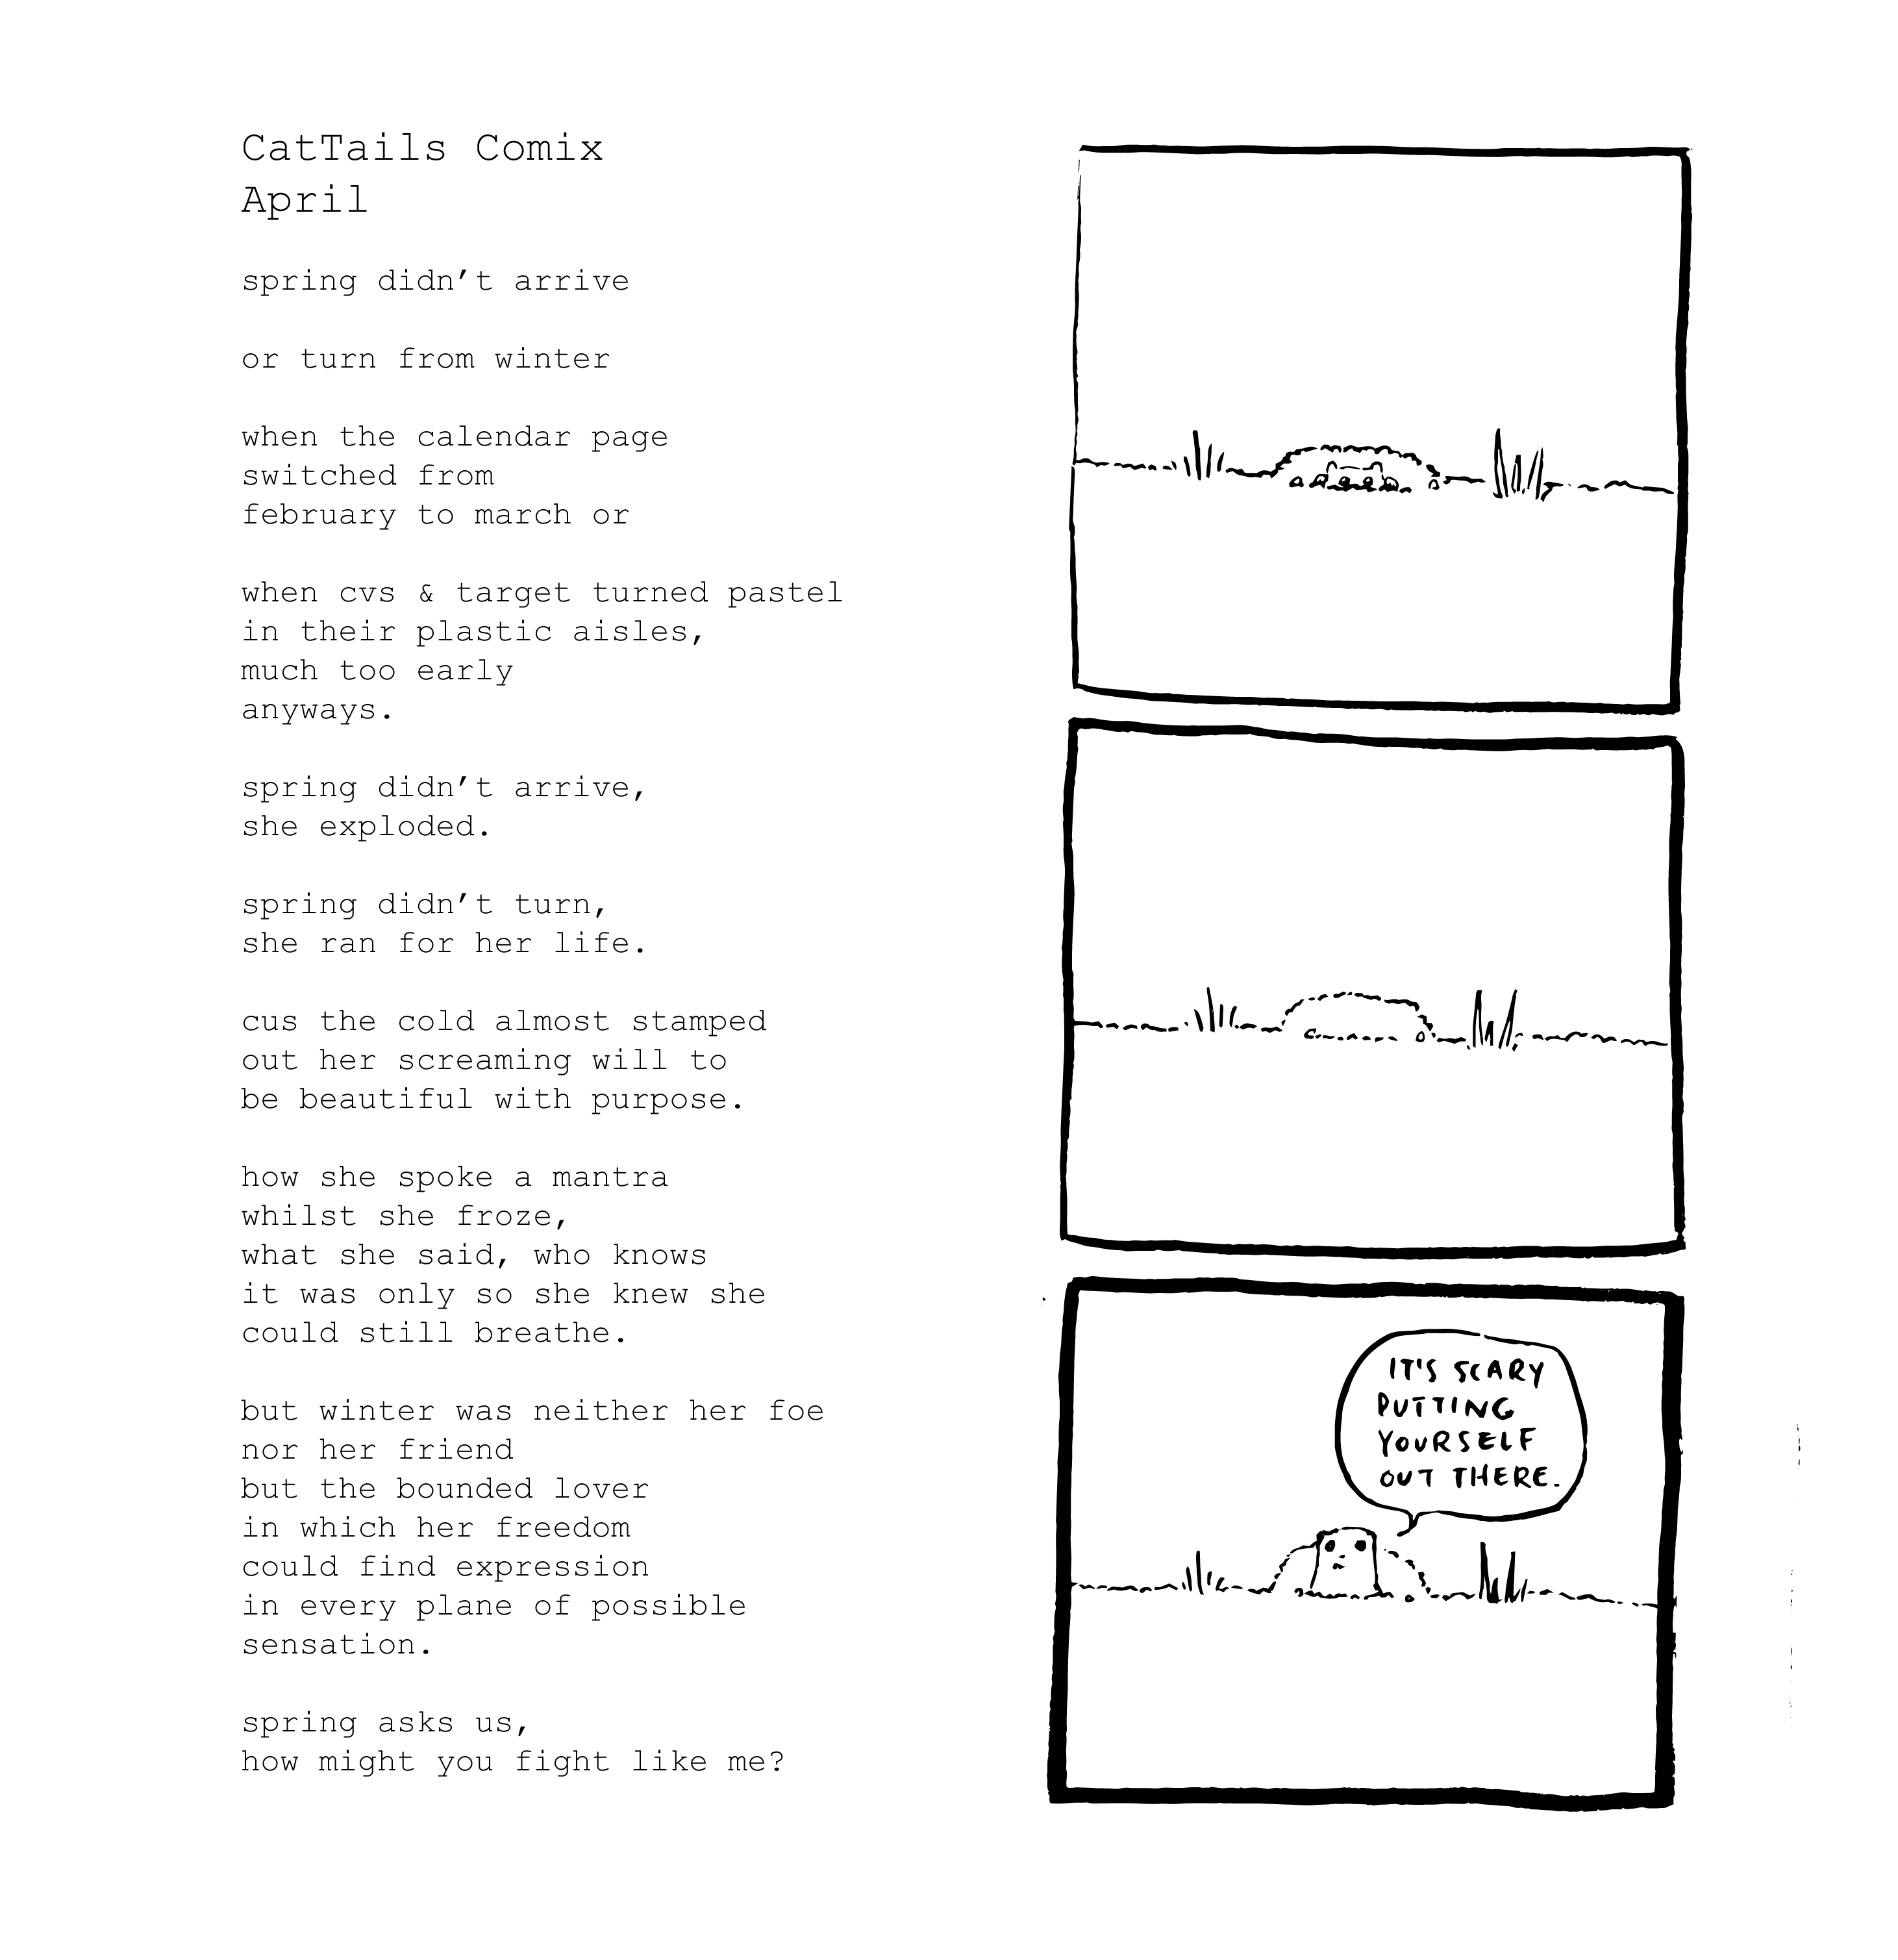 CatTails Comix
April
spring didn’t arrive
or turn from winter
when the calendar page
switched from
february to march or
when cvs & target turned pastel
in their plastic aisles,
much too early
anyways.
spring didn’t arrive,
she exploded.
spring didn’t turn,
she ran for her life.
cus the cold almost stamped
out her screaming will to
be beautiful with purpose.
how she spoke a mantra
whilst she froze,
what she said, who knows
it was only so she knew she
could still breathe.
but winter was neither her foe
nor her friend
but the bounded lover
in which her freedom
could find expression
in every plane of possible
sensation.
spring asks us,
how might you fight like me?
IT'S SCARY
PUTTING
YOURSELF
OUT THERE.